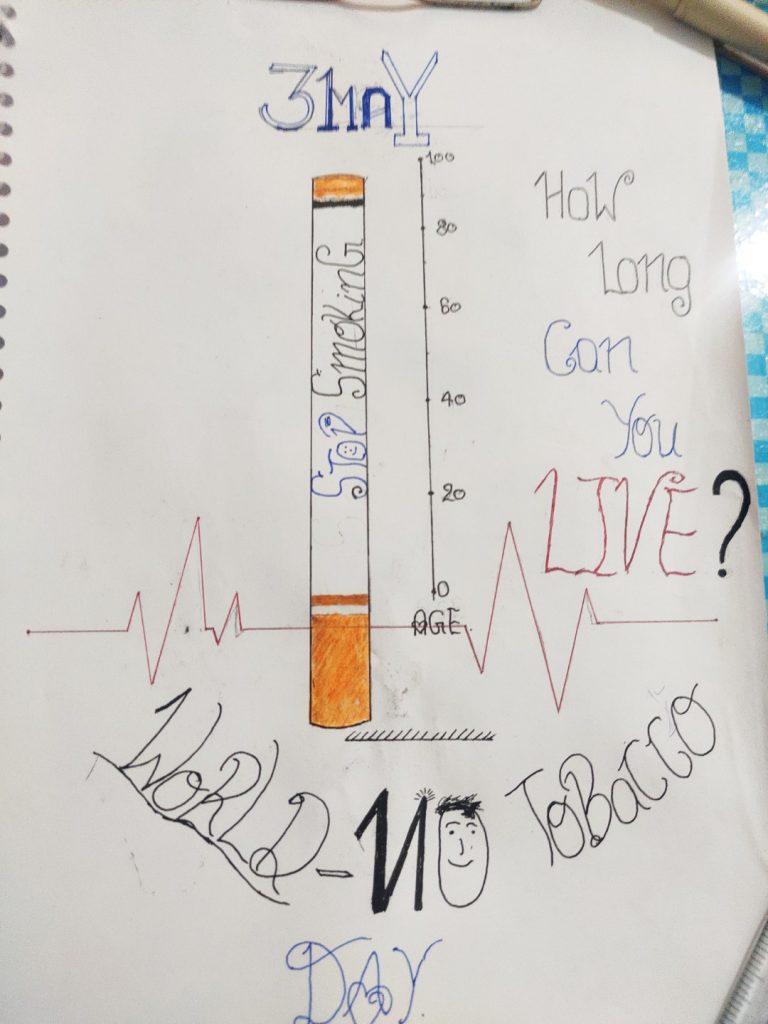 3 MAY
100
80
60
40
20
0
AGE
STOP SMOKING
HOW
Long
Can
You
LIVE?
WORLD - NO TOBACCO
DAY